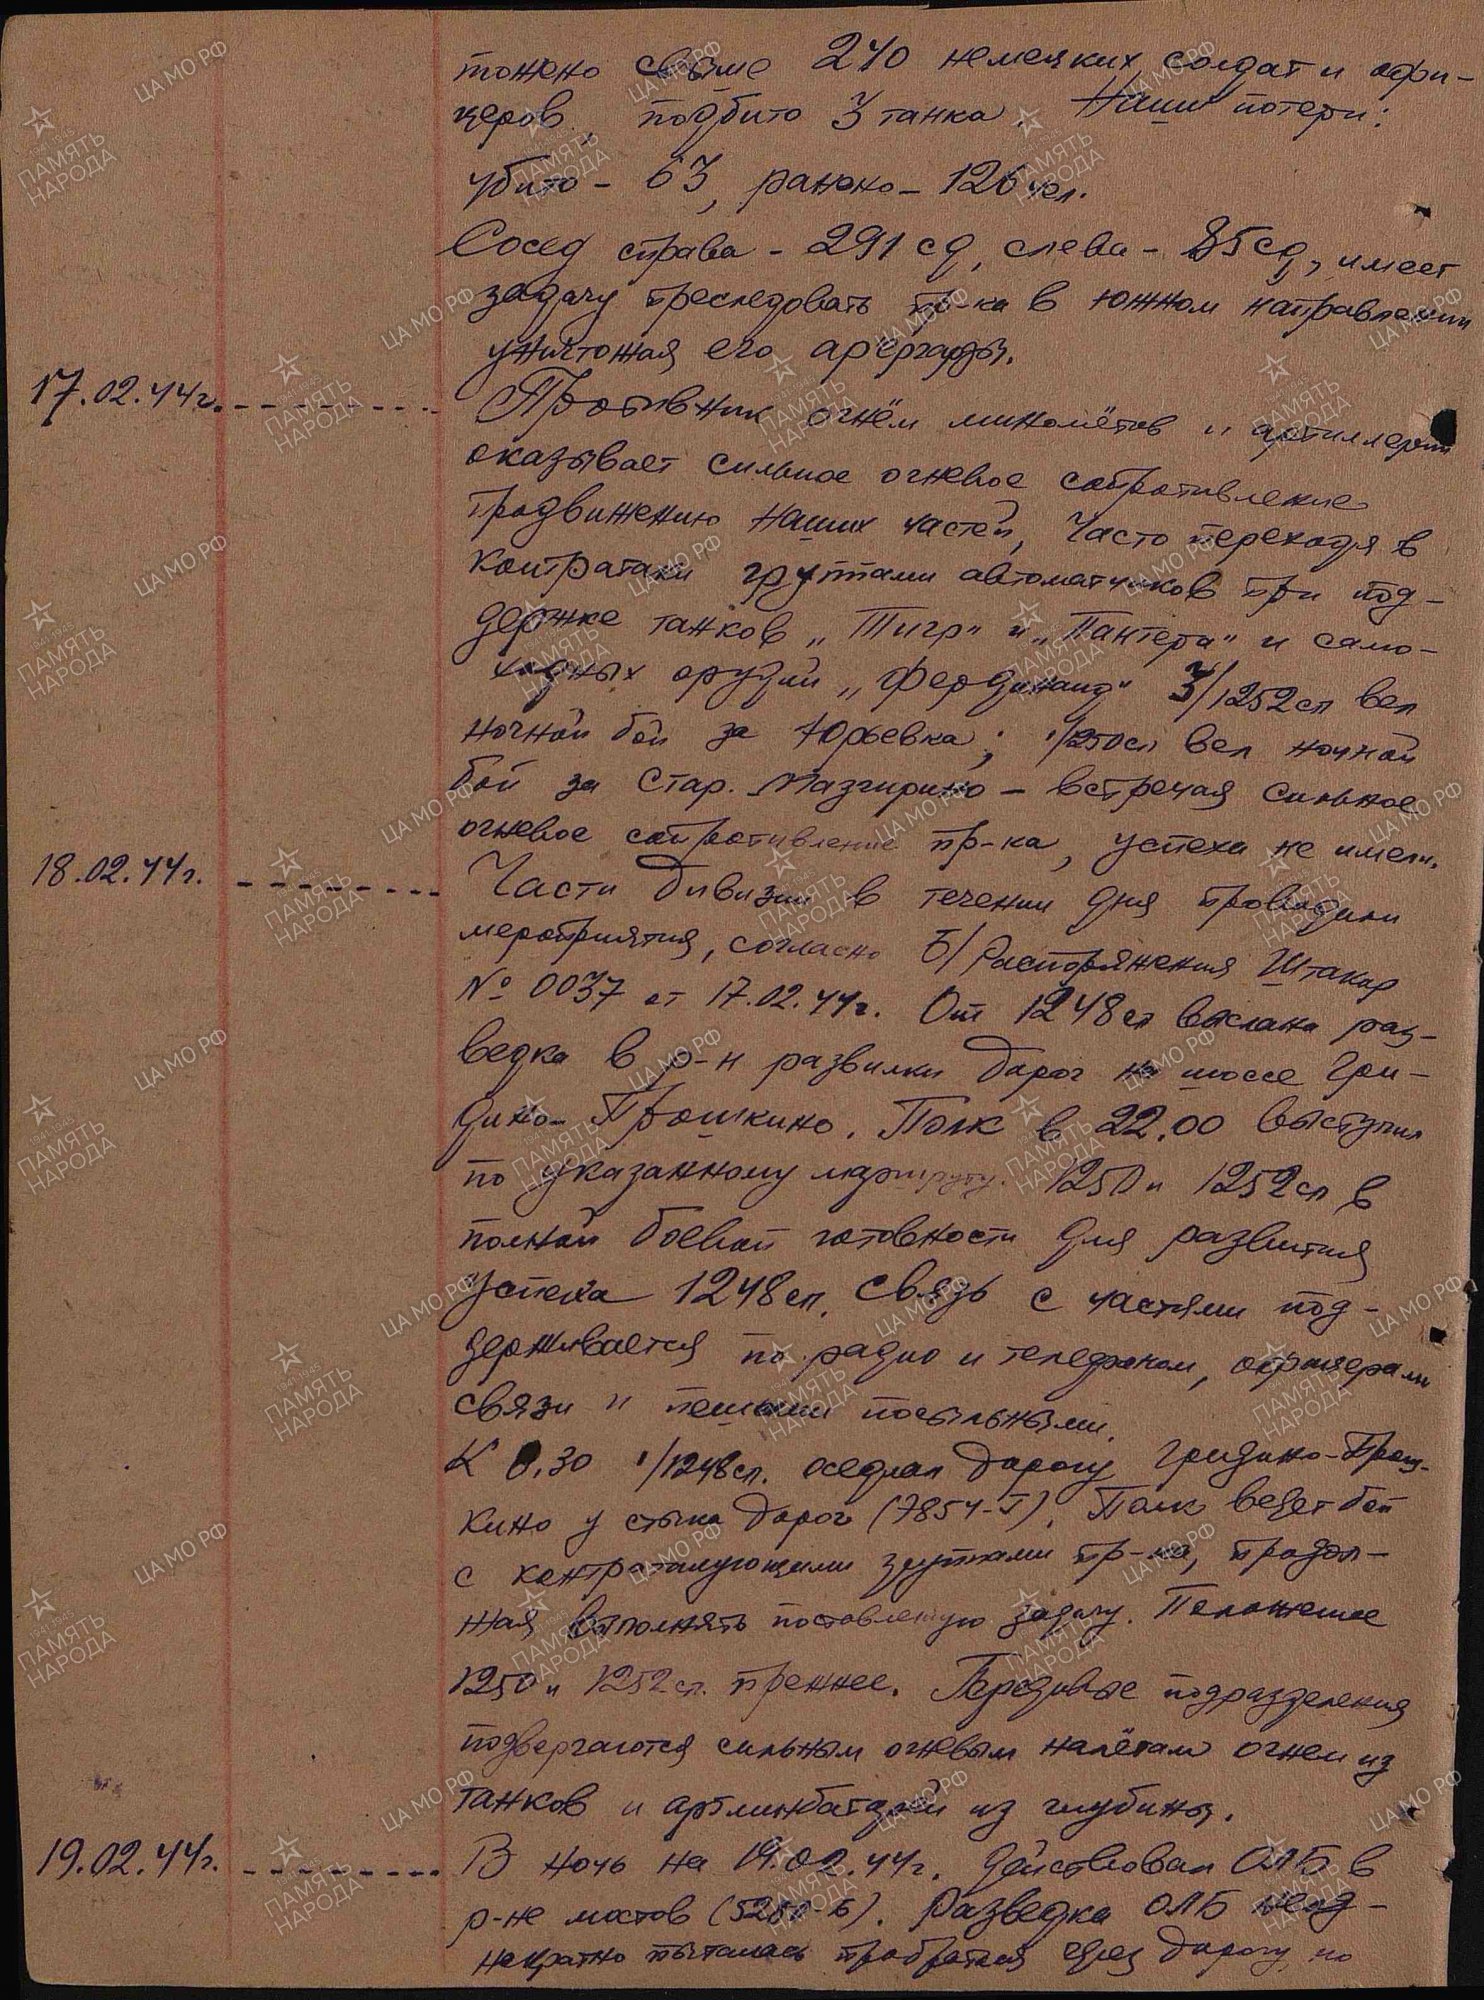 тожено свыше 240 немецких солдат и офи-
церов, подбито 3 танка. Наши потери:
убито - 63, ранено - 126 чел.
Сосед справа - 291 сд, слева - 85 сд, имеет
задачу преследовать пр-ка в южном направлении
уничтожая его арьергарды.
17.02.44г. Противник огнём миномётов и артиллерии
оказывает сильное огневое сопротивление
продвижению наших частей, часто переходя в
контратаки группами автоматчиков при под-
держке танков „Тигр" и „Пантера" и само-
ходных орудий „Фердинанд" 3/1252сп вел
ночной бой за Юрьевка; 1/1250сп вел ночной
бой за Стар. Мазгирино - встречая сильное
огневое сопротивление пр-ка, успеха не имели.
18.02.44г. Части дивизии в течении дня проводили
мероприятия, согласно Б/Распоряжения Штакор
№ 0037 от 17.02.44г. От 1248сп выслана раз-
ведка в р-н развилки дорог на шоссе Гри-
дино - Прошкино. Полк в 22.00 выступил
по указанному маршруту. 1250 и 1252сп в
полной боевой готовности для развития
успеха 1248сп. Связь с частями под-
держивается по радио и телефоном, офицерами
связи и пешими посыльными.
К 8.30 1/1248сп. оседлал дорогу Гридино-Прош-
кино у стыка дорог (7854-Г). Полк ведет бой
с контратакующими группами пр-ка, продол-
жая выполнять поставленную задачу. Положение
1250 и 1252сп. прежнее. Передовые подразделения
подвергаются сильным огневым налётам огнем из
танков и артминбатарей из глубины.
19.02.44г. В ночь на 19.02.44г. действовал ОЛБ в
р-не мостов (5280-Б). Разведка ОЛБ неод-
нократно пыталась пробраться через дорогу, но
ПАМЯТЬ НАРОДА
1941-1945
ЦА МО РФ